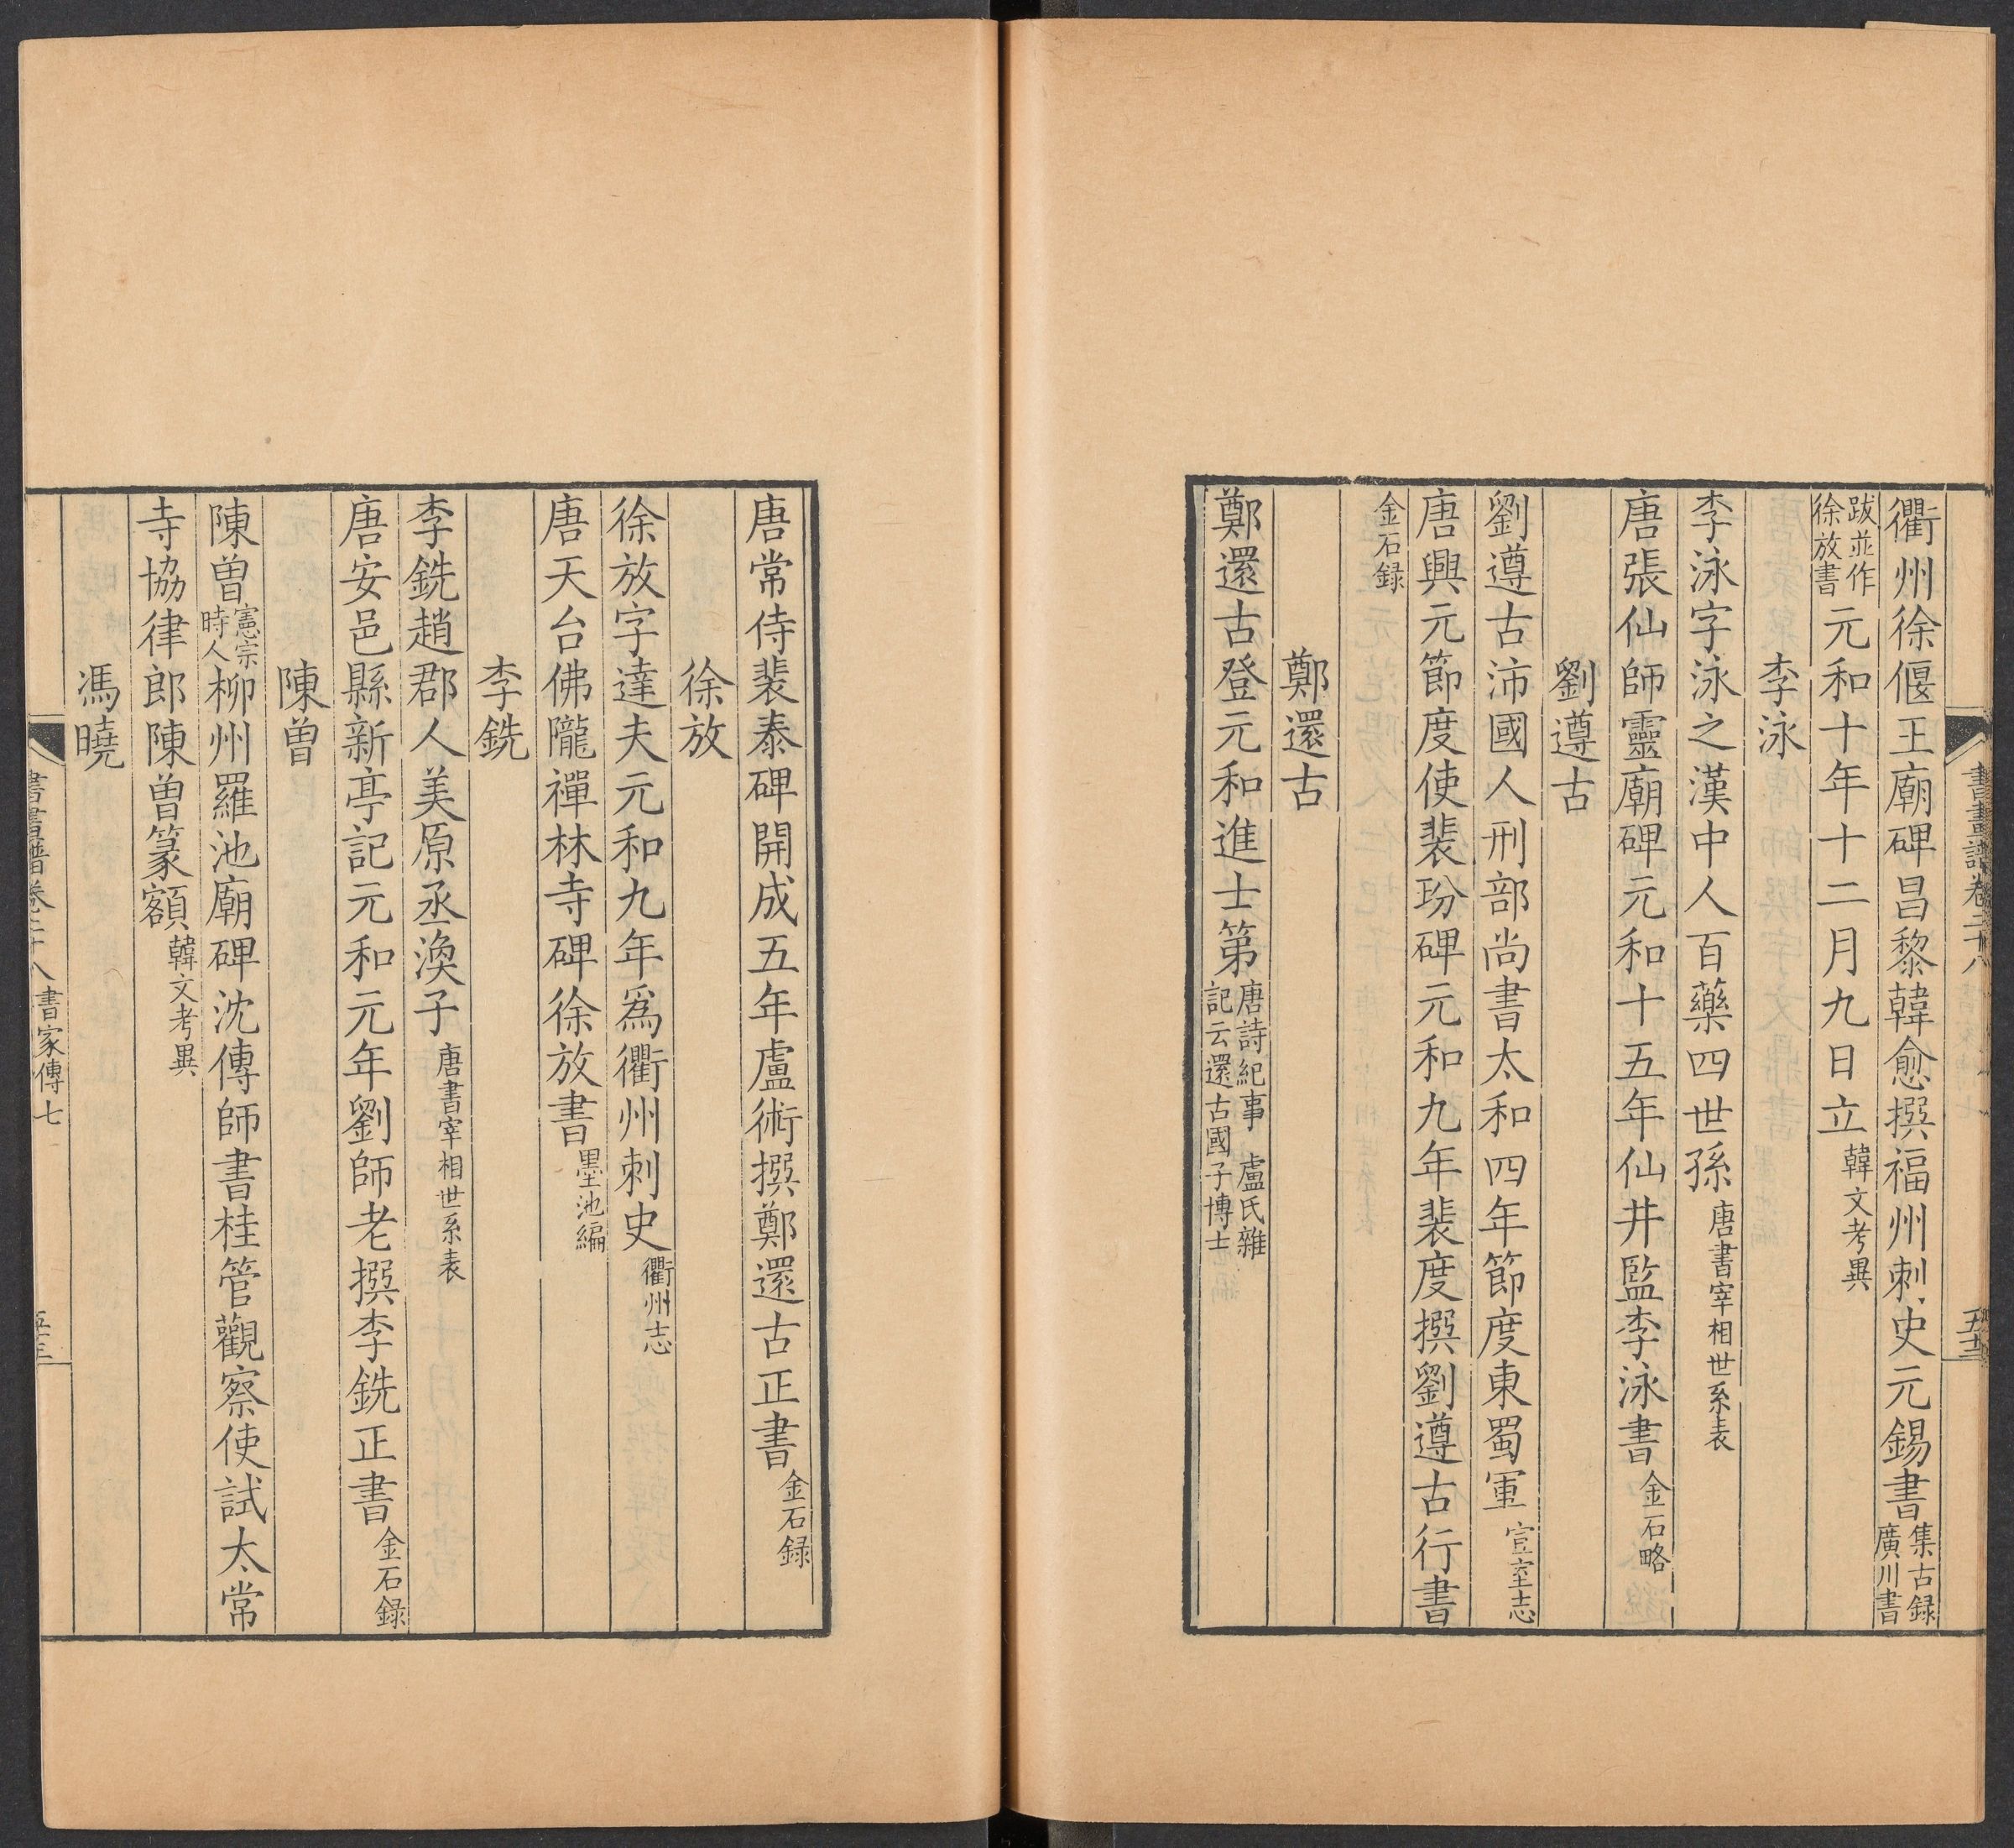 衢州徐偃王廟碑昌黎韓愈撰福州刺史元錫書集古録廣川書
跋並作徐放書元和十年十二月九日立韓文考異
李泳
李泳字泳之漢中人百藥四世孫唐書宰相世系表
唐張仙師靈廟碑元和十五年仙井監李泳書金石略
劉遵古
劉遵古沛國人刑部尚書太和四年節度東蜀軍宣室志
唐興元節度使裴玢碑元和九年裴度撰劉遵古行書
金石録
鄭還古
鄭還古登元和進士第唐詩紀事 盧氏雜記云還古國子博士
唐常侍裴泰碑開成五年盧術撰鄭還古正書金石録
徐放
徐放字達夫元和九年爲衢州刺史衢州志
唐天台佛隴禪林寺碑徐放書墨池編
李銑
李銑趙郡人美原丞渙子唐書宰相世系表
唐安邑縣新亭記元和元年劉師老撰李銑正書金石録
陳曾
陳曾憲宗時人柳州羅池廟碑沈傳師書桂管觀察使試太常
寺協律郎陳曾篆額韓文考異
馮曉
書畫譜卷二十八 書家傳七